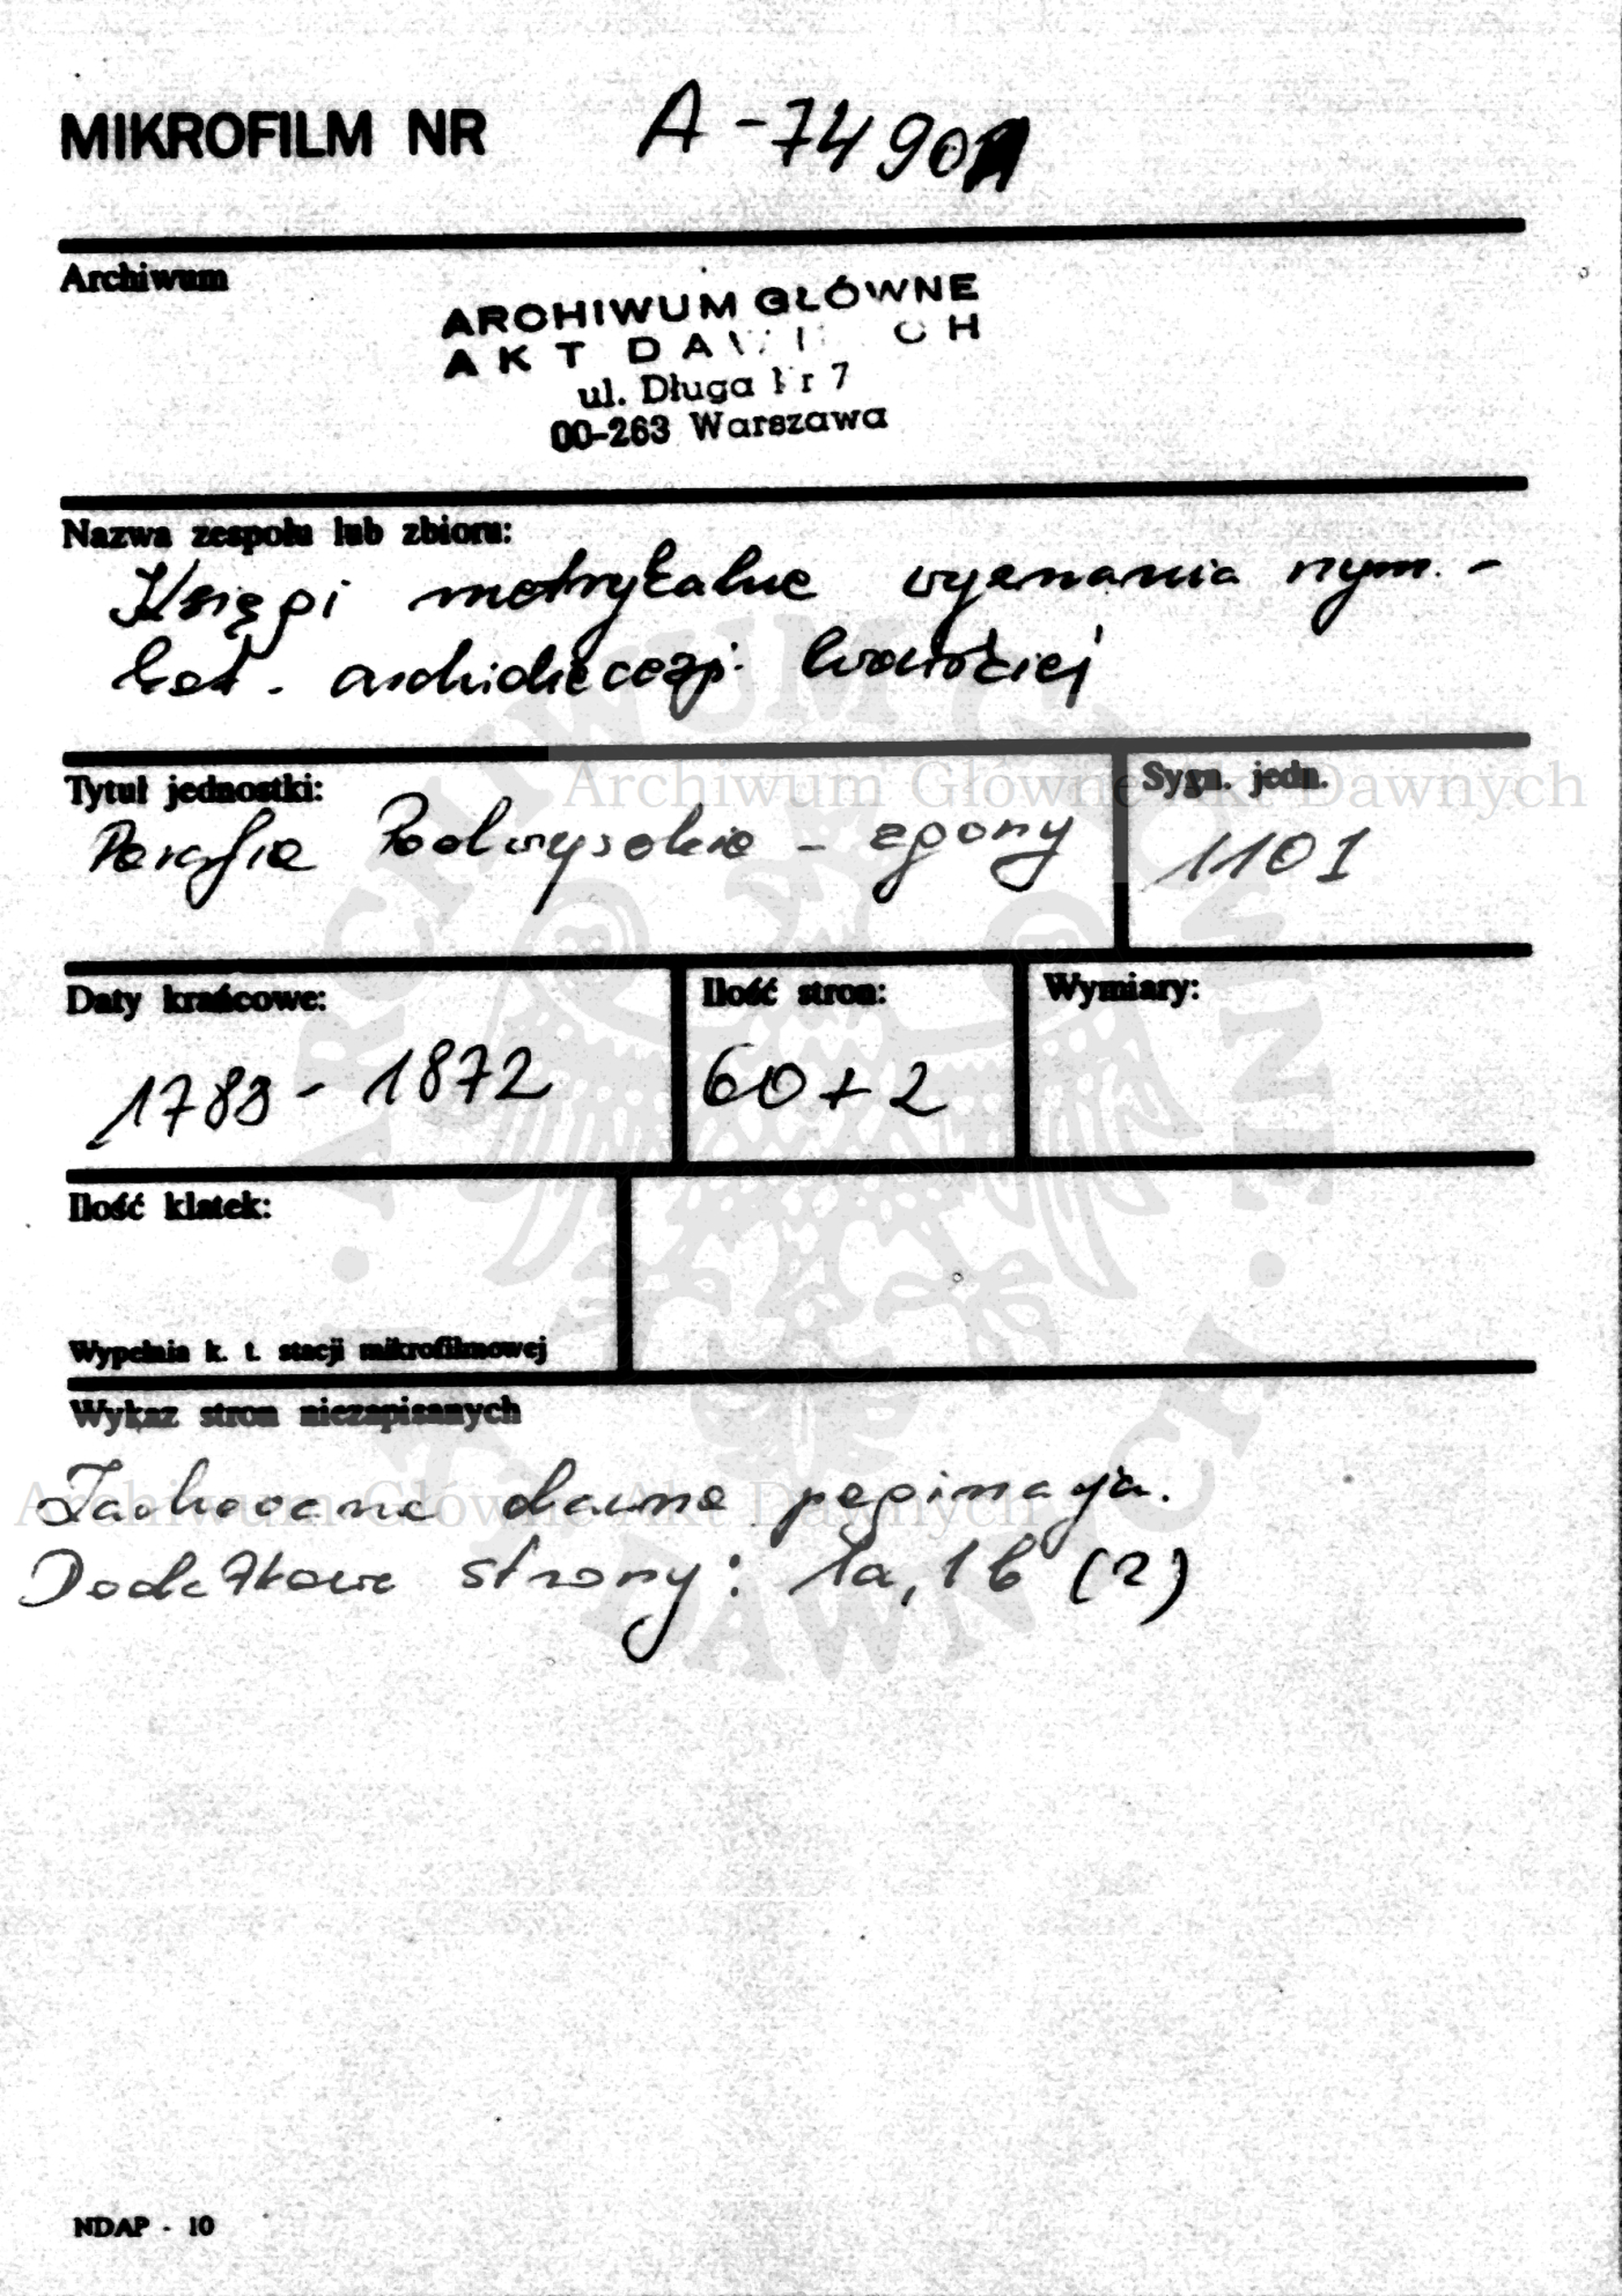 MIKROFILM NR A-7490
Archiwum
ARCHIWUM GŁÓWNE
AKT DAWNYCH
ul. Długa Nr 7
00-263 Warszawa
Nazwa zespołu lub zbioru:
Księgi metrykalne wyznania rzym. -
kat. archidiecezji lwowskiej
Tytuł jednostki:
Sygn. jedn.
Parafia Podwysokie - zgony
1101
Daty krańcowe:
Ilość stron:
Wymiary:
1789 - 1872
60 + 2
Ilość klatek:
Wypełnia k. t. stacji mikrofilmowej
Wykaz stron niezapisanych
Zachowana dawna paginacja.
Dodatkowe strony: 1a, 1b (2)
NDAP - 10
Archiwum Główne Akt Dawnych
Archiwum Główne Akt Dawnych
ARCHIWUM GŁÓWNE · AKT DAWNYCH ·